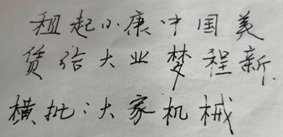 租起小康中国美
赁结大业梦程新
横批:大家机械